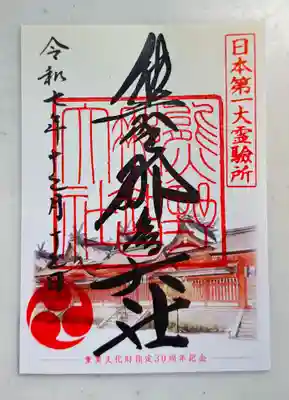 日本第一大霊験所
熊野那智大社
令和七年十二月十三日
重要文化財指定30周年記念